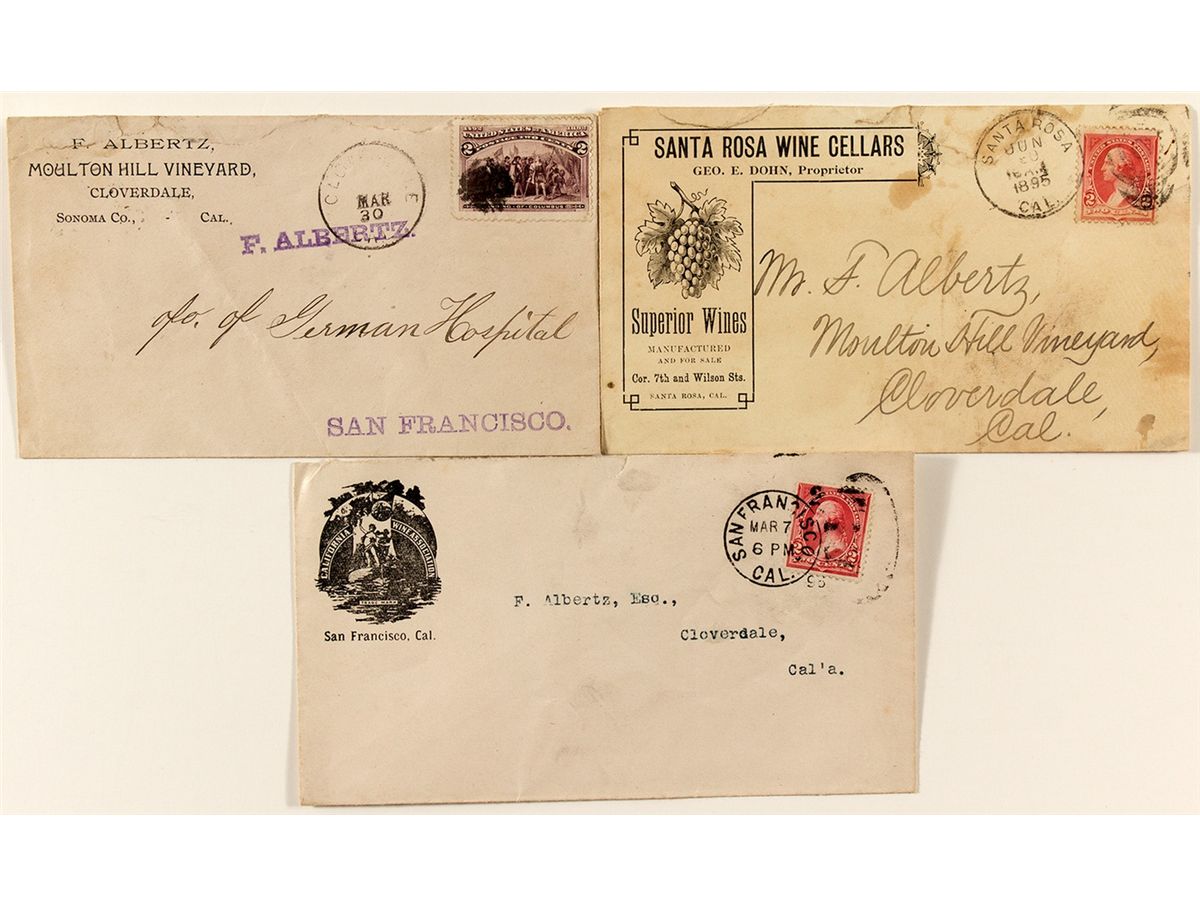 F. ALBERTZ,
MOULTON HILL VINEYARD,
CLOVERDALE,
SONOMA CO., CAL.
F. ALBERTZ.
MAR
30
1492 UNITED STATES OF AMERICA 1892
2 2
LANDING OF COLUMBUS
c/o. of German Hospital
SAN FRANCISCO.
SANTA ROSA WINE CELLARS
GEO. E. DOHN, Proprietor
Superior Wines
MANUFACTURED
AND FOR SALE
Cor. 7th and Wilson Sts.
SANTA ROSA, CAL.
SANTA ROSA
JUN
1895
CAL.
2 2
TWO CENTS
Mr. F. Albertz,
Moulton Hill Vineyard,
Cloverdale,
Cal.
CALIFORNIA WINE ASSOCIATION
TRADE MARK
San Francisco, Cal.
SAN FRANCISCO
MAR 7
6 PM
CAL.
2 2
F. Albertz, Esq.,
Cloverdale,
Cal'a.